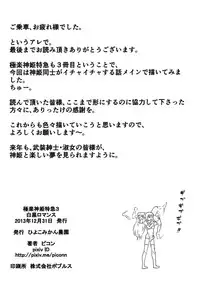 ご乗車、お疲れ様でした。
というアレで。
最後までお読み頂きありがとうございます。
極楽神姫特急も3冊目ということで、
今回は神姫同士がイチャイチャする話メインで描いてみまし
た。
ちゅー。
読んで頂いた皆様、ここまで形にするのに協力して下さった
方々に、ありったけの感謝を。
これからも色々描いていこうと思いますので、
よろしくお願いしますー。
来年も、武装紳士・淑女の皆様が、
神姫と楽しい夢を見られますように。
極楽神姫特急3
白黒ロマンス
2013年12月31日 発行
発行 ひよこみかん農園
著者 ピコン
pixiv ID
http://pixiv.me/piconn
印刷所 株式会社ポプルス